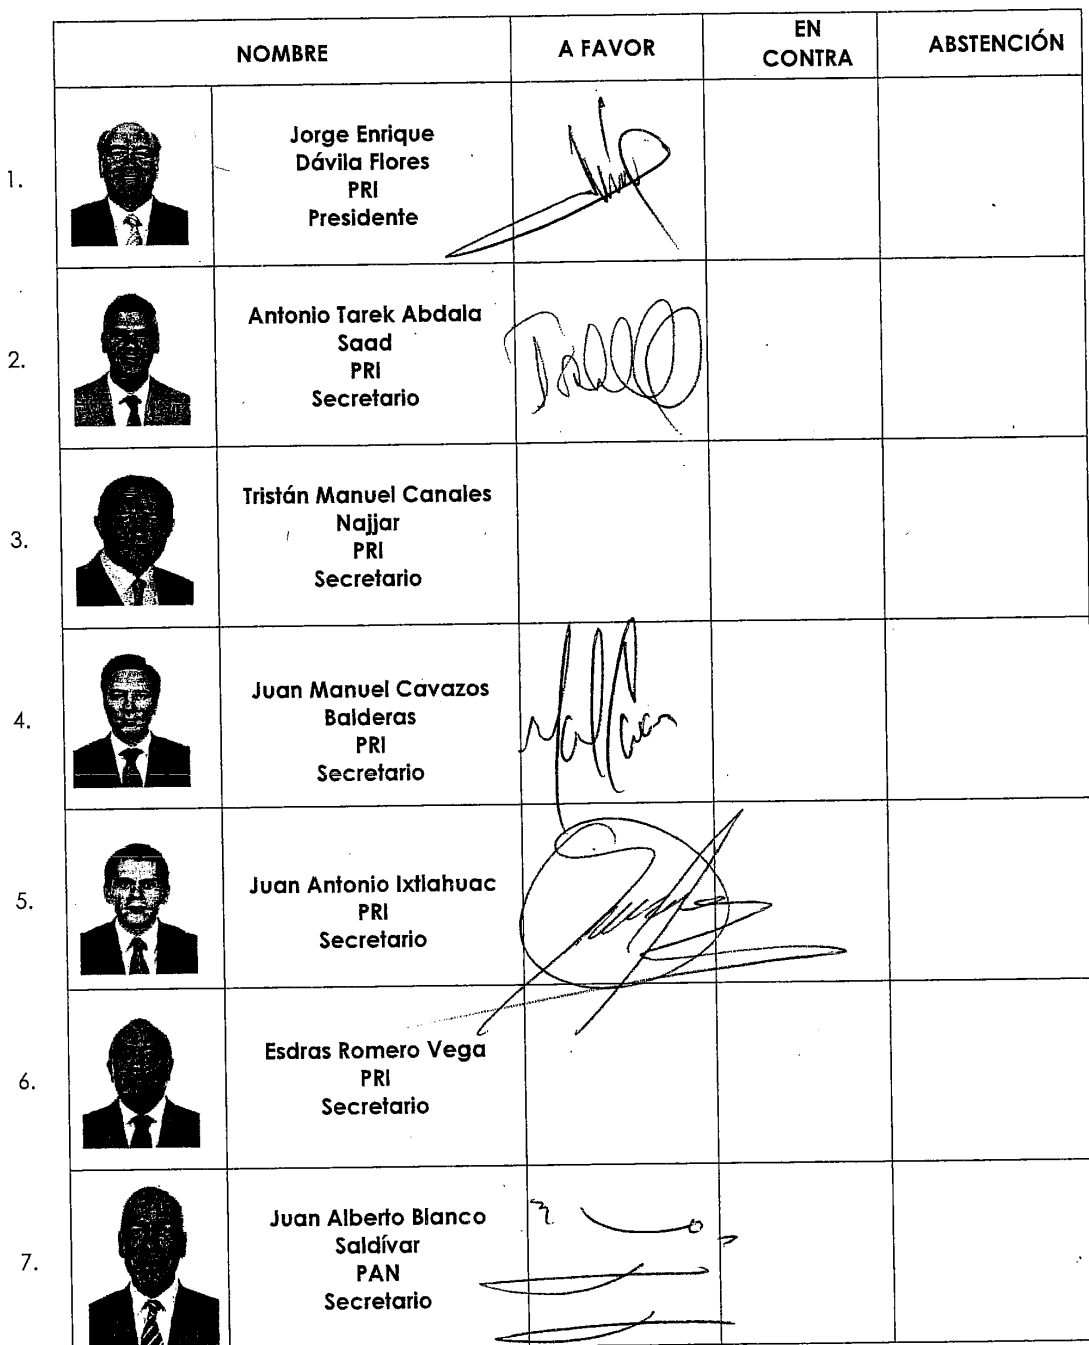 NOMBRE A FAVOR EN CONTRA ABSTENCIÓN
1.
Jorge Enrique
Dávila Flores
PRI
Presidente
2.
Antonio Tarek Abdala
Saad
PRI
Secretario
3.
Tristán Manuel Canales
Najjar
PRI
Secretario
4.
Juan Manuel Cavazos
Balderas
PRI
Secretario
5.
Juan Antonio Ixtlahuac
PRI
Secretario
6.
Esdras Romero Vega
PRI
Secretario
7.
Juan Alberto Blanco
Saldívar
PAN
Secretario